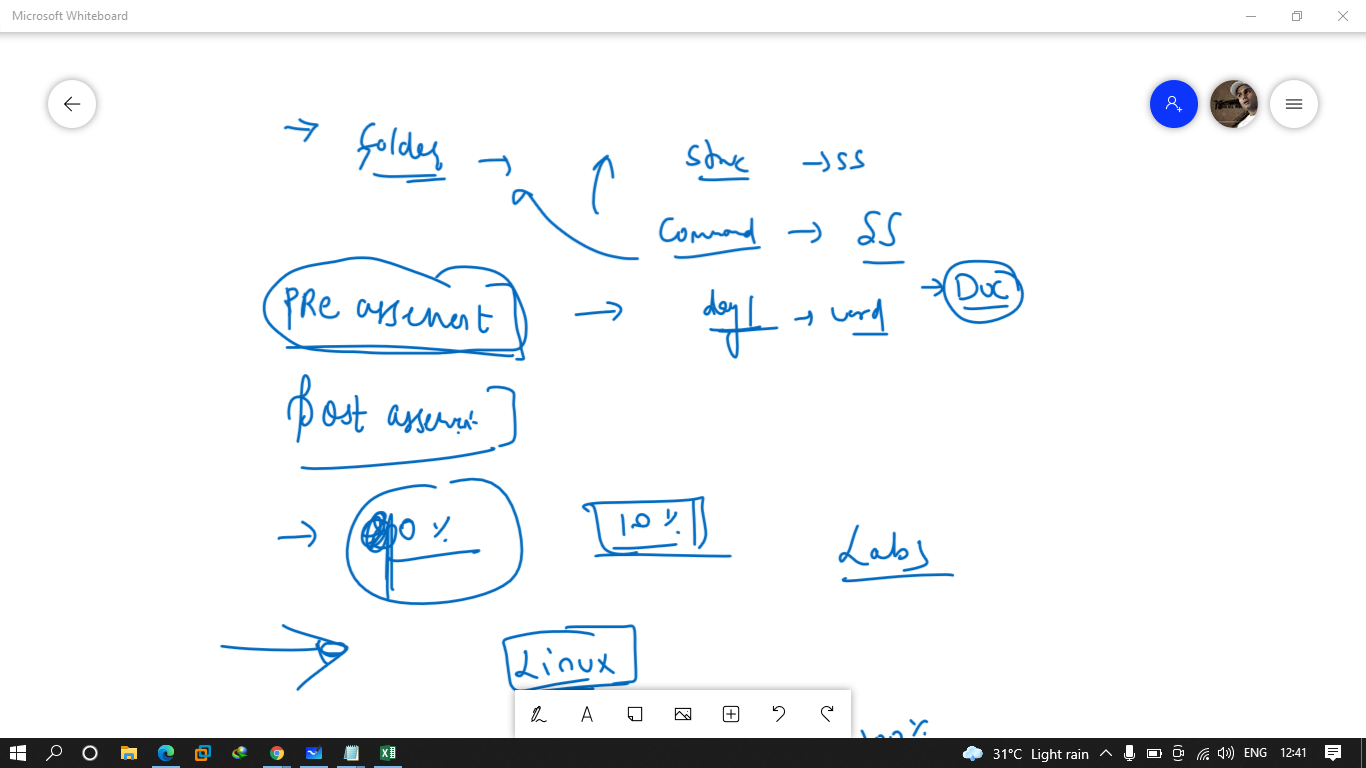 Microsoft Whiteboard
→ folder → Struc → SS
Command → SS
PRe assement → day1 → word → Doc
Post assemnt
→ 90% 10% Labs
Linux
100%
31°C Light rain ENG 12:41